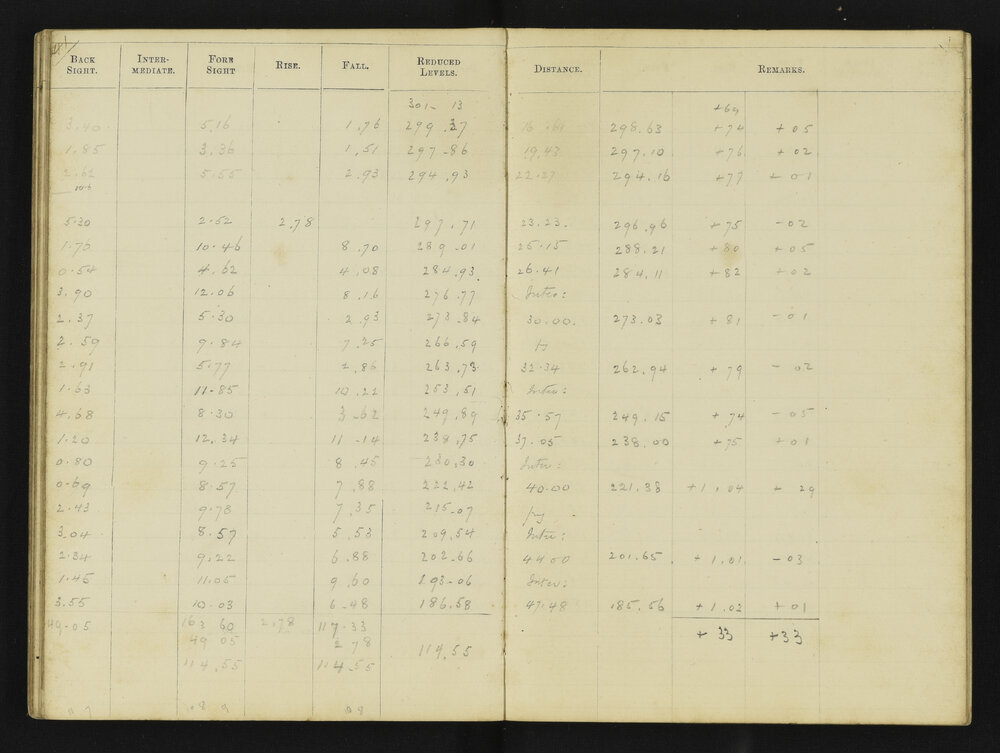 BACK SIGHT. INTER-MEDIATE. FORE SIGHT RISE. FALL. REDUCED LEVELS. DISTANCE. REMARKS.
301-13 +69
3.40 5.16 1.76 299.37 298.63 +74 +05
1.85 3.36 1.51 297-86 19.43 297.10 +76 +02
2.62 5.55 2.93 294.93 22.27 294.16 +77 +01
5.30 2.52 2.78 297.71 23.23. 296.96 +75 -02
1.76 10.46 8.70 289.01 25.15 288.21 +80 +05
0.54 4.62 4.08 284.93 26.41 284.11 +82 +02
3.90 12.06 8.16 276.77 Inter:
2.37 5.30 2.93 273.84 30.00. 273.03 +81 -01
2.59 9.84 7.25 266.59
2.91 5.77 2.86 263.73 32.34 262.94 +79 -02
1.63 11.85 10.22 253.51 Inter:
4.68 8.30 3.62 249.89 35.57 249.15 +74 -05
1.20 12.34 11-14 238.75 37.05 238.00 +75 +01
0.80 9.25 8.45 230.30 Inter:
0.69 8.57 7.88 222.42 40.00 221.38 +1.04 + 29
2.43 9.78 7.35 215-07
3.04 8.57 5.53 209.54 Inter:
2.34 9.22 6.88 202.66 4400 201.65 +1.01 -03
1.45 11.05 9.60 193-06 Inter:
3.55 10.03 6-48 186.58 47.48 185.56 +1.02 +01
49.05 163 60 2.78 117.33 +33 +33
49 05 2 78 114.55
114.55 114.55